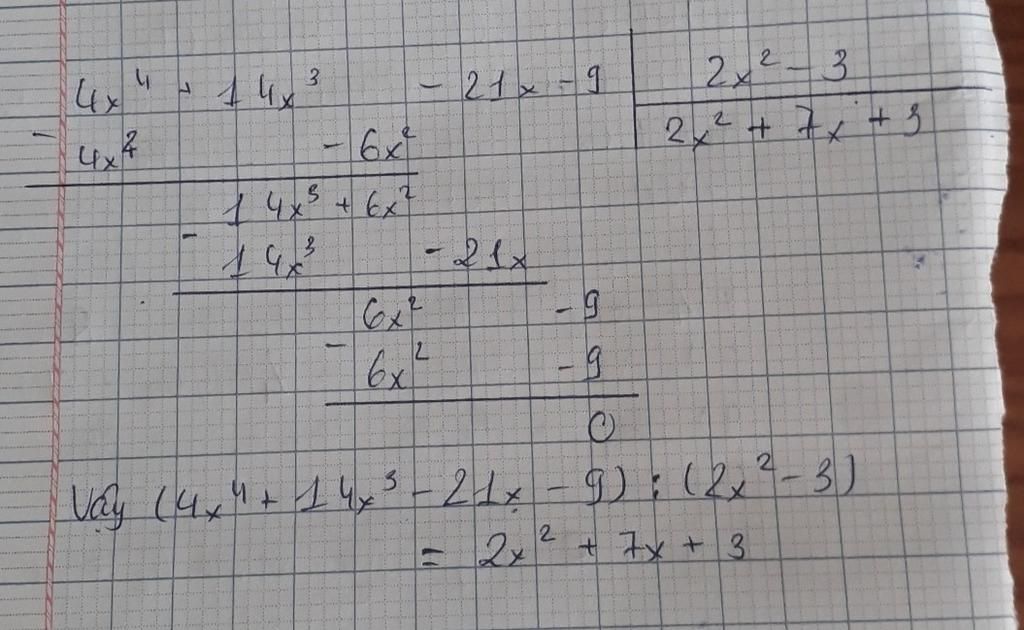 4x⁴ + 14x³ - 21x - 9 | 2x² - 3
- 4x⁴ - 6x² | 2x² + 7x + 3
14x³ + 6x²
- 14x³ - 21x
6x² - 9
- 6x² - 9
0
Vậy (4x⁴ + 14x³ - 21x - 9) : (2x² - 3)
= 2x² + 7x + 3